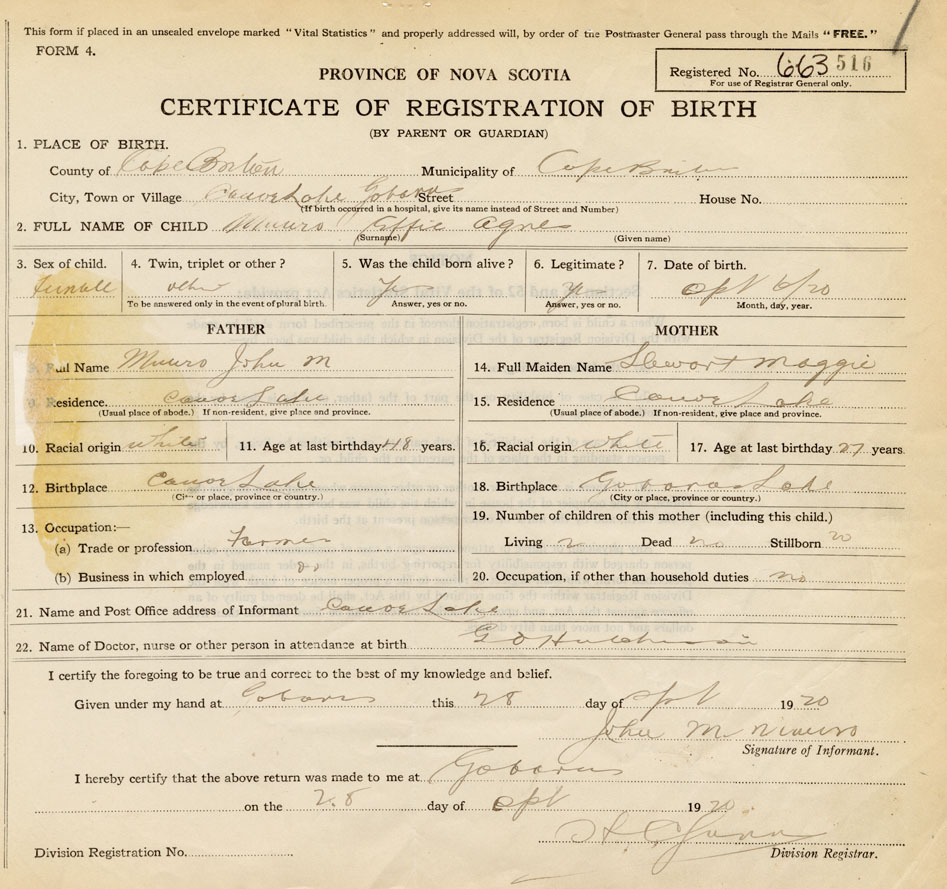 This form if placed in an unsealed envelope marked "Vital Statistics" and properly addressed will, by order of the Postmaster General pass through the Mails "FREE."
FORM 4.
Registered No. 663 516
For use of Registrar General only.
PROVINCE OF NOVA SCOTIA
CERTIFICATE OF REGISTRATION OF BIRTH
(BY PARENT OR GUARDIAN)
1. PLACE OF BIRTH.
County of Cape Breton Municipality of Cape Breton
City, Town or Village Canoe Lake Gabarus Street House No.
(If birth occurred in a hospital, give its name instead of Street and Number)
2. FULL NAME OF CHILD Munro Effie Agnes
(Surname) (Given name)
3. Sex of child. 4. Twin, triplet or other? 5. Was the child born alive? 6. Legitimate? 7. Date of birth.
Female other Sept 6/20
To be answered only in the event of plural birth. Answer, yes or no. Answer, yes or no. Month, day, year.
FATHER MOTHER
Full Name Munro John M 14. Full Maiden Name Stewart Maggie
Residence. Canoe Lake 15. Residence Canoe Lake
(Usual place of abode.) If non-resident, give place and province. (Usual place of abode.) If non-resident, give place and province.
10. Racial origin white 11. Age at last birthday 48 years. 16. Racial origin white 17. Age at last birthday 27 years.
12. Birthplace Canoe Lake 18. Birthplace Gabarus Lake
(City or place, province or country.) (City or place, province or country.)
13. Occupation:— 19. Number of children of this mother (including this child.)
(a) Trade or profession Farmer Living 2 Dead no Stillborn no
(b) Business in which employed 20. Occupation, if other than household duties no
21. Name and Post Office address of Informant Canoe Lake
22. Name of Doctor, nurse or other person in attendance at birth G D Hutchinson
I certify the foregoing to be true and correct to the best of my knowledge and belief.
Given under my hand at Gabarus this 28 day of Sept 1920
John M Munro
Signature of Informant.
I hereby certify that the above return was made to me at Gabarus
on the 28 day of Sept 1920
Division Registration No. Division Registrar.